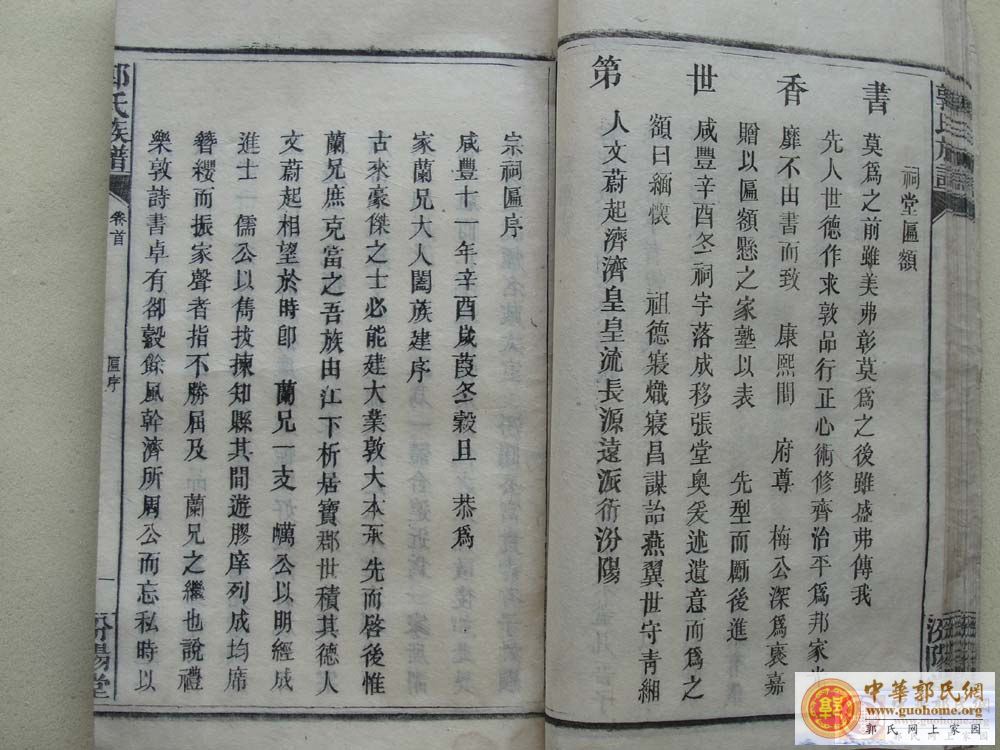 郭氏族譜
汾陽
祠堂匾額
書 莫為之前雖美弗彰莫為之後雖盛弗傳我
先人世德作求敦品行正心術修齊治平為邦家光
香 靡不由書而致 康熙間 府尊 梅公深為褒嘉
贈以匾額懸之家塾以表 先型而勵後進
世 咸豐辛酉冬祠宇落成移張堂奧爰述遺意而為之
額曰緬懷 祖德寢熾寢昌謀詒燕翼世守青緗
第 人文蔚起濟濟皇皇流長源遠派衍汾陽
宗祠匾序
咸豐十一年辛酉歲葭冬穀旦 恭為
家蘭兄大人闔族建序
古來豪傑之士必能建大業敦大本承先而啓後惟
蘭兄庶克當之吾族由江下析居寶郡世積其德人
文蔚起相望於時卽 蘭兄一支 公以明經成
進士 一儒公以雋拔揀知縣其間遊膠庠列成均席
簪纓而振家聲者指不勝屈及 蘭兄之繼也說禮
樂敦詩書卓有卻穀餘風幹濟所周公而忘私時以
郭氏族譜
卷首
匾序
一
汾陽堂
中華郭氏網
www.guohome.org
郭氏網上家園